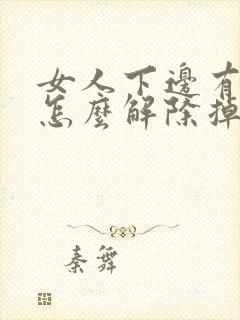 女人下邊有
怎麼解除掉
秦舞